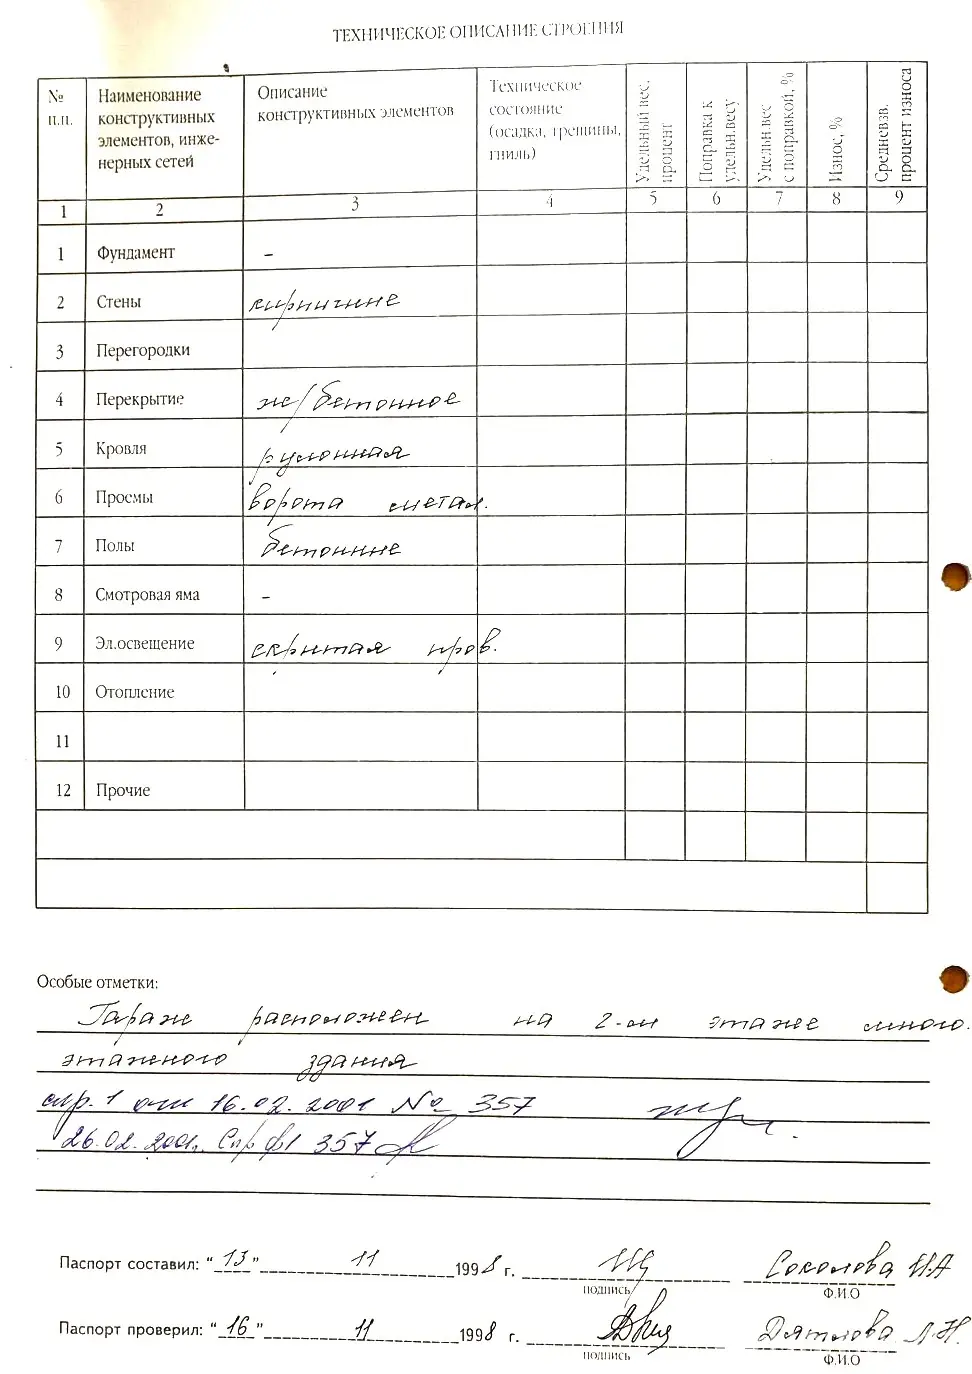 ТЕХНИЧЕСКОЕ ОПИСАНИЕ СТРОЕНИЯ
№ п.п.
Наименование конструктивных элементов, инже-нерных сетей
Описание конструктивных элементов
Техническое состояние (осадка, трещины, гниль)
Удельный вес, процент
Поправка к удельн.весу
Удельн.вес с поправкой, %
Износ, %
Средневзв. процент износа
1 2 3 4 5 6 7 8 9
1 Фундамент –
2 Стены кирпичные
3 Перегородки
4 Перекрытие же/бетонное
5 Кровля рулонная
6 Проемы ворота метал.
7 Полы бетонные
8 Смотровая яма –
9 Эл.освещение скрытая пров.
10 Отопление
11
12 Прочие
Особые отметки:
Гараж расположен на 2-ом этаже много.
этажного здания
спр. 1 от 16.02.2001 № 357
26.02.2001г. Спр ф1 357
Паспорт составил: "13" 11 1998 г. Соколова И.А
подпись Ф.И.О
Паспорт проверил: "16" 11 1998 г. Дятлова Л.Н.
подпись Ф.И.О